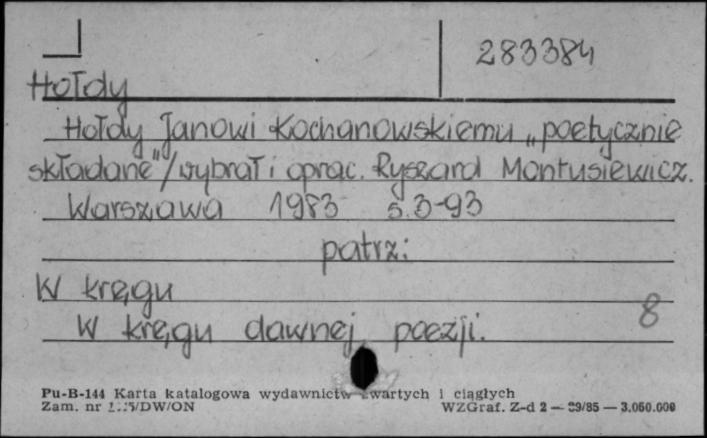 283384
Hołdy
Hołdy Janowi Kochanowskiemu „poetycznie
składane"/wybrał i oprac. Ryszard Montusiewicz.
Warszawa 1983 s. 3-93
patrz:
W kręgu
8
W kręgu dawnej poezji.
Pu-B-144 Karta katalogowa wydawnictw zwartych i ciągłych
Zam. nr /DW/ON WZGraf. Z-d 2 — 29/85 — 3.050.000